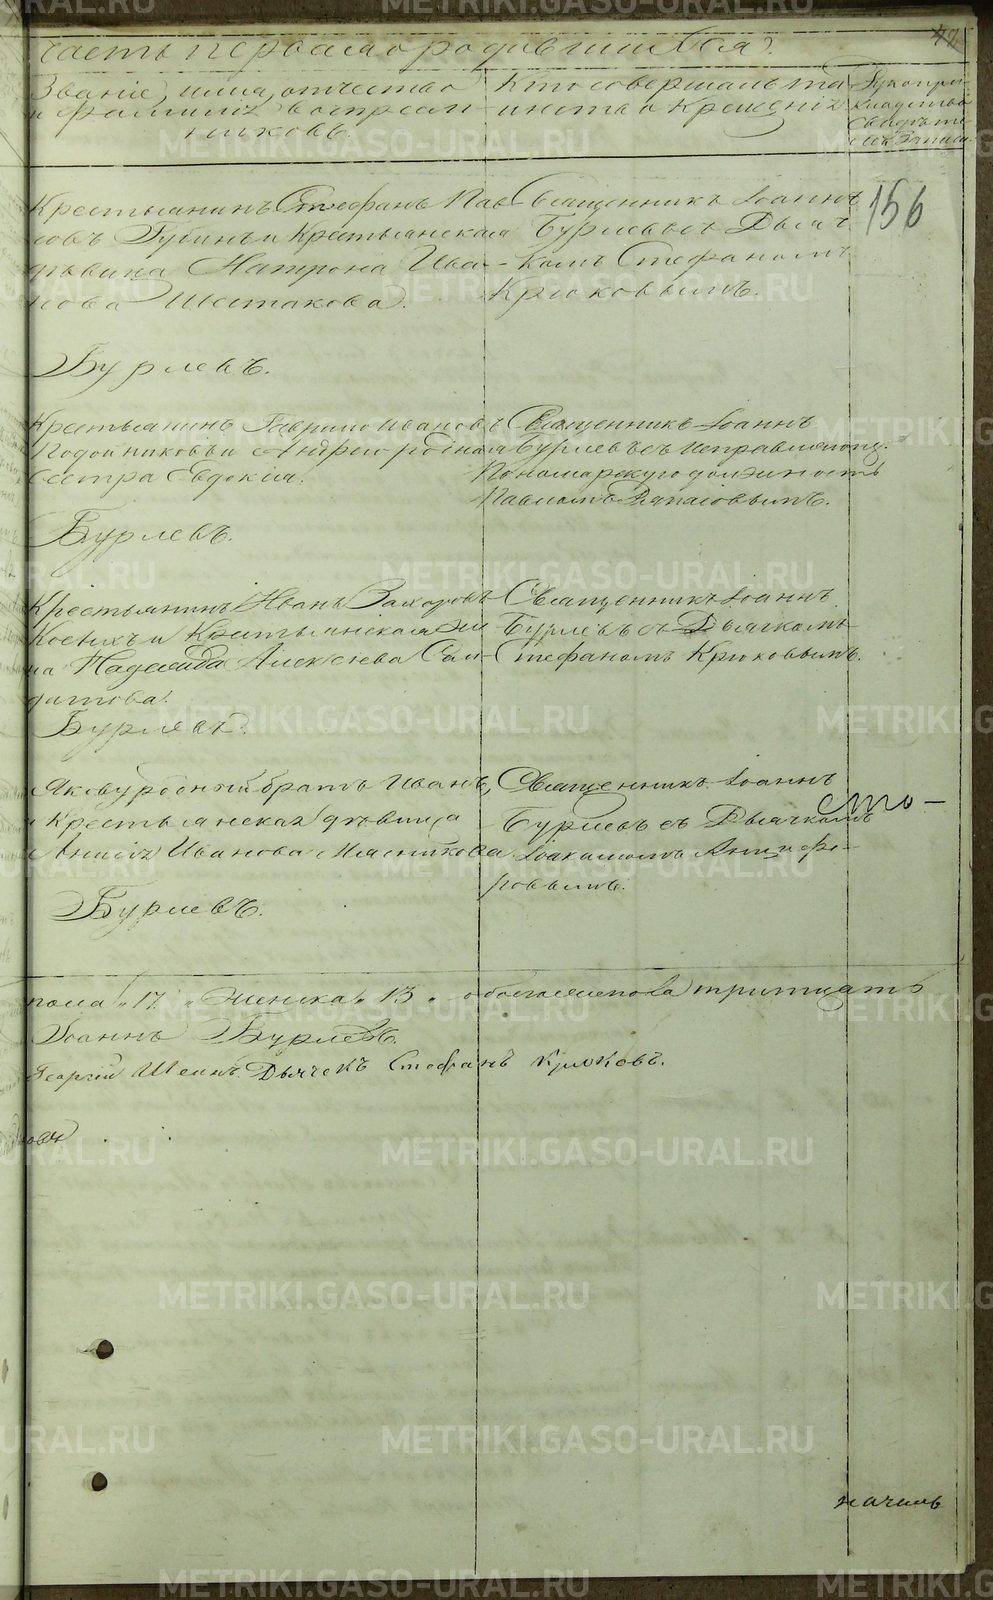 часть первая о родившихся.
47
Званіе, имя, отчество
и фамилія воспреем-
никовъ.
Кто совершалъ та-
инство крещенія
Рукопри-
кладство
свидѣте-
156
Крестьянинъ Стефанъ Пав-
ловъ Гутинъ и крестьянская
дѣвица Матрона Ива-
нова Шестакова.
Священникъ Іоаннъ
Бурлевъ съ Дьяч-
комъ Стефаномъ
Крюковымъ.
Бурлевъ.
Крестьянинъ Гаврило Ивановъ
Подойниковъ и Андрея родная
сестра Евдокія.
Священникъ Іоаннъ
Бурлевъ съ исправляющ.
Пономарскую должность
Павломъ
Бурлевъ.
Крестьянинъ Иванъ Захаровъ
Косыхъ и Крестьянская же-
на Надежда Алексѣева
Священникъ Іоаннъ
Бурлевъ съ Дьячкомъ
Стефаномъ Крюковымъ.
Бурлевъ.
Якову родный братъ Иванъ,
и Крестьянская дѣвица
Анисья Иванова Мясникова
Священникъ Іоаннъ
Бурлевъ съ Дьячкомъ
Іоакимомъ Анциферо-
ровымъ.
сто-
Бурлевъ.
пола "17" женска "13" обоего пола тритцать
Іоаннъ Бурлевъ.
Георгій Шеинъ. Дьячекъ Стефанъ Крюковъ.
началь
METRIKI.GASO-URAL.RU